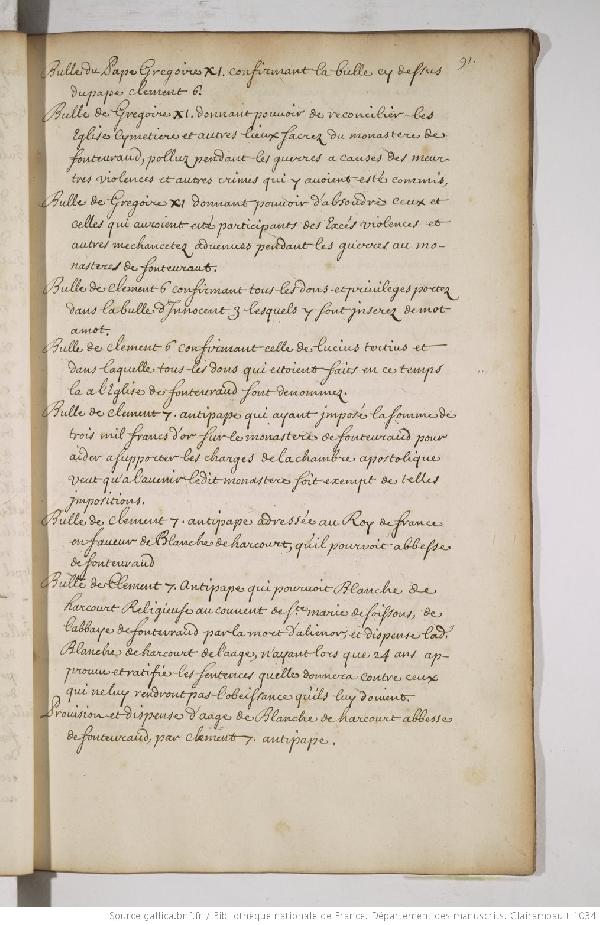 91.
Bulle du Pape Gregoire XI. confirmant la bulle cy dessus
du pape clement 6.
Bulle de Gregoire XI. donnant pouuoir de reconcilier les
Eglise Cymetiere et autres lieux sacrez du monastere de
fonteuraud, polluz pendant les guerres a causes des meur-
tres violences et autres crimes qui y auoient esté commis.
Bulle de Gregoire XI donnant pouuoir d'absoudre ceux et
celles qui auroient esté participants des Excés violences et
autres mechancetez aduenues pendant les guerres au mo-
nasteres de fonteuraut.
Bulle de Clement 6 confirmant tous les dons et priuileges portez
dans la bulle d'Innocent 3 lesquels y sont inserez de mot
a mot.
Bulle de clement 6 confirmant celle de lucius tertius et
dans laquelle tous les dons qui estoient faits en ce temps
la a l'Eglise de fonteuraud sont denommez.
Bulle de Clement 7. antipape qui ayant imposé la somme de
trois mil francs d'or sur le monastere de fonteuraud pour
aider a supporter les charges de la chambre apostolique
veut qu'a l'auenir ledit monastere soit exempt de telles
impositions.
Bulle de Clement 7. antipape adressée au Roy de france
en faueur de Blanche de harcourt, qu'il pouruoit abbesse
de fonteuraud
Bulle de Clement 7. Antipape qui pouruoit Blanche de
harcourt Religieuse au couuent de Ste marie de soissons, de
l'abbaye de fonteuraud par la mort d'alienor, et dispense lad.
Blanche de harcourt de l'aage, n'ayant lors que 24 ans ap-
prouue et ratifie les sentences quelle donnera contre ceux
qui ne luy rendront pas l'obeissance qu'ils luy doiuent.
Prouision et dispense d'aage de Blanche de harcourt abbesse
de fonteuraud, par Clement 7. antipape.
Source gallica.bnf.fr / Bibliothèque nationale de France. Département des manuscrits. Clairambault 1034